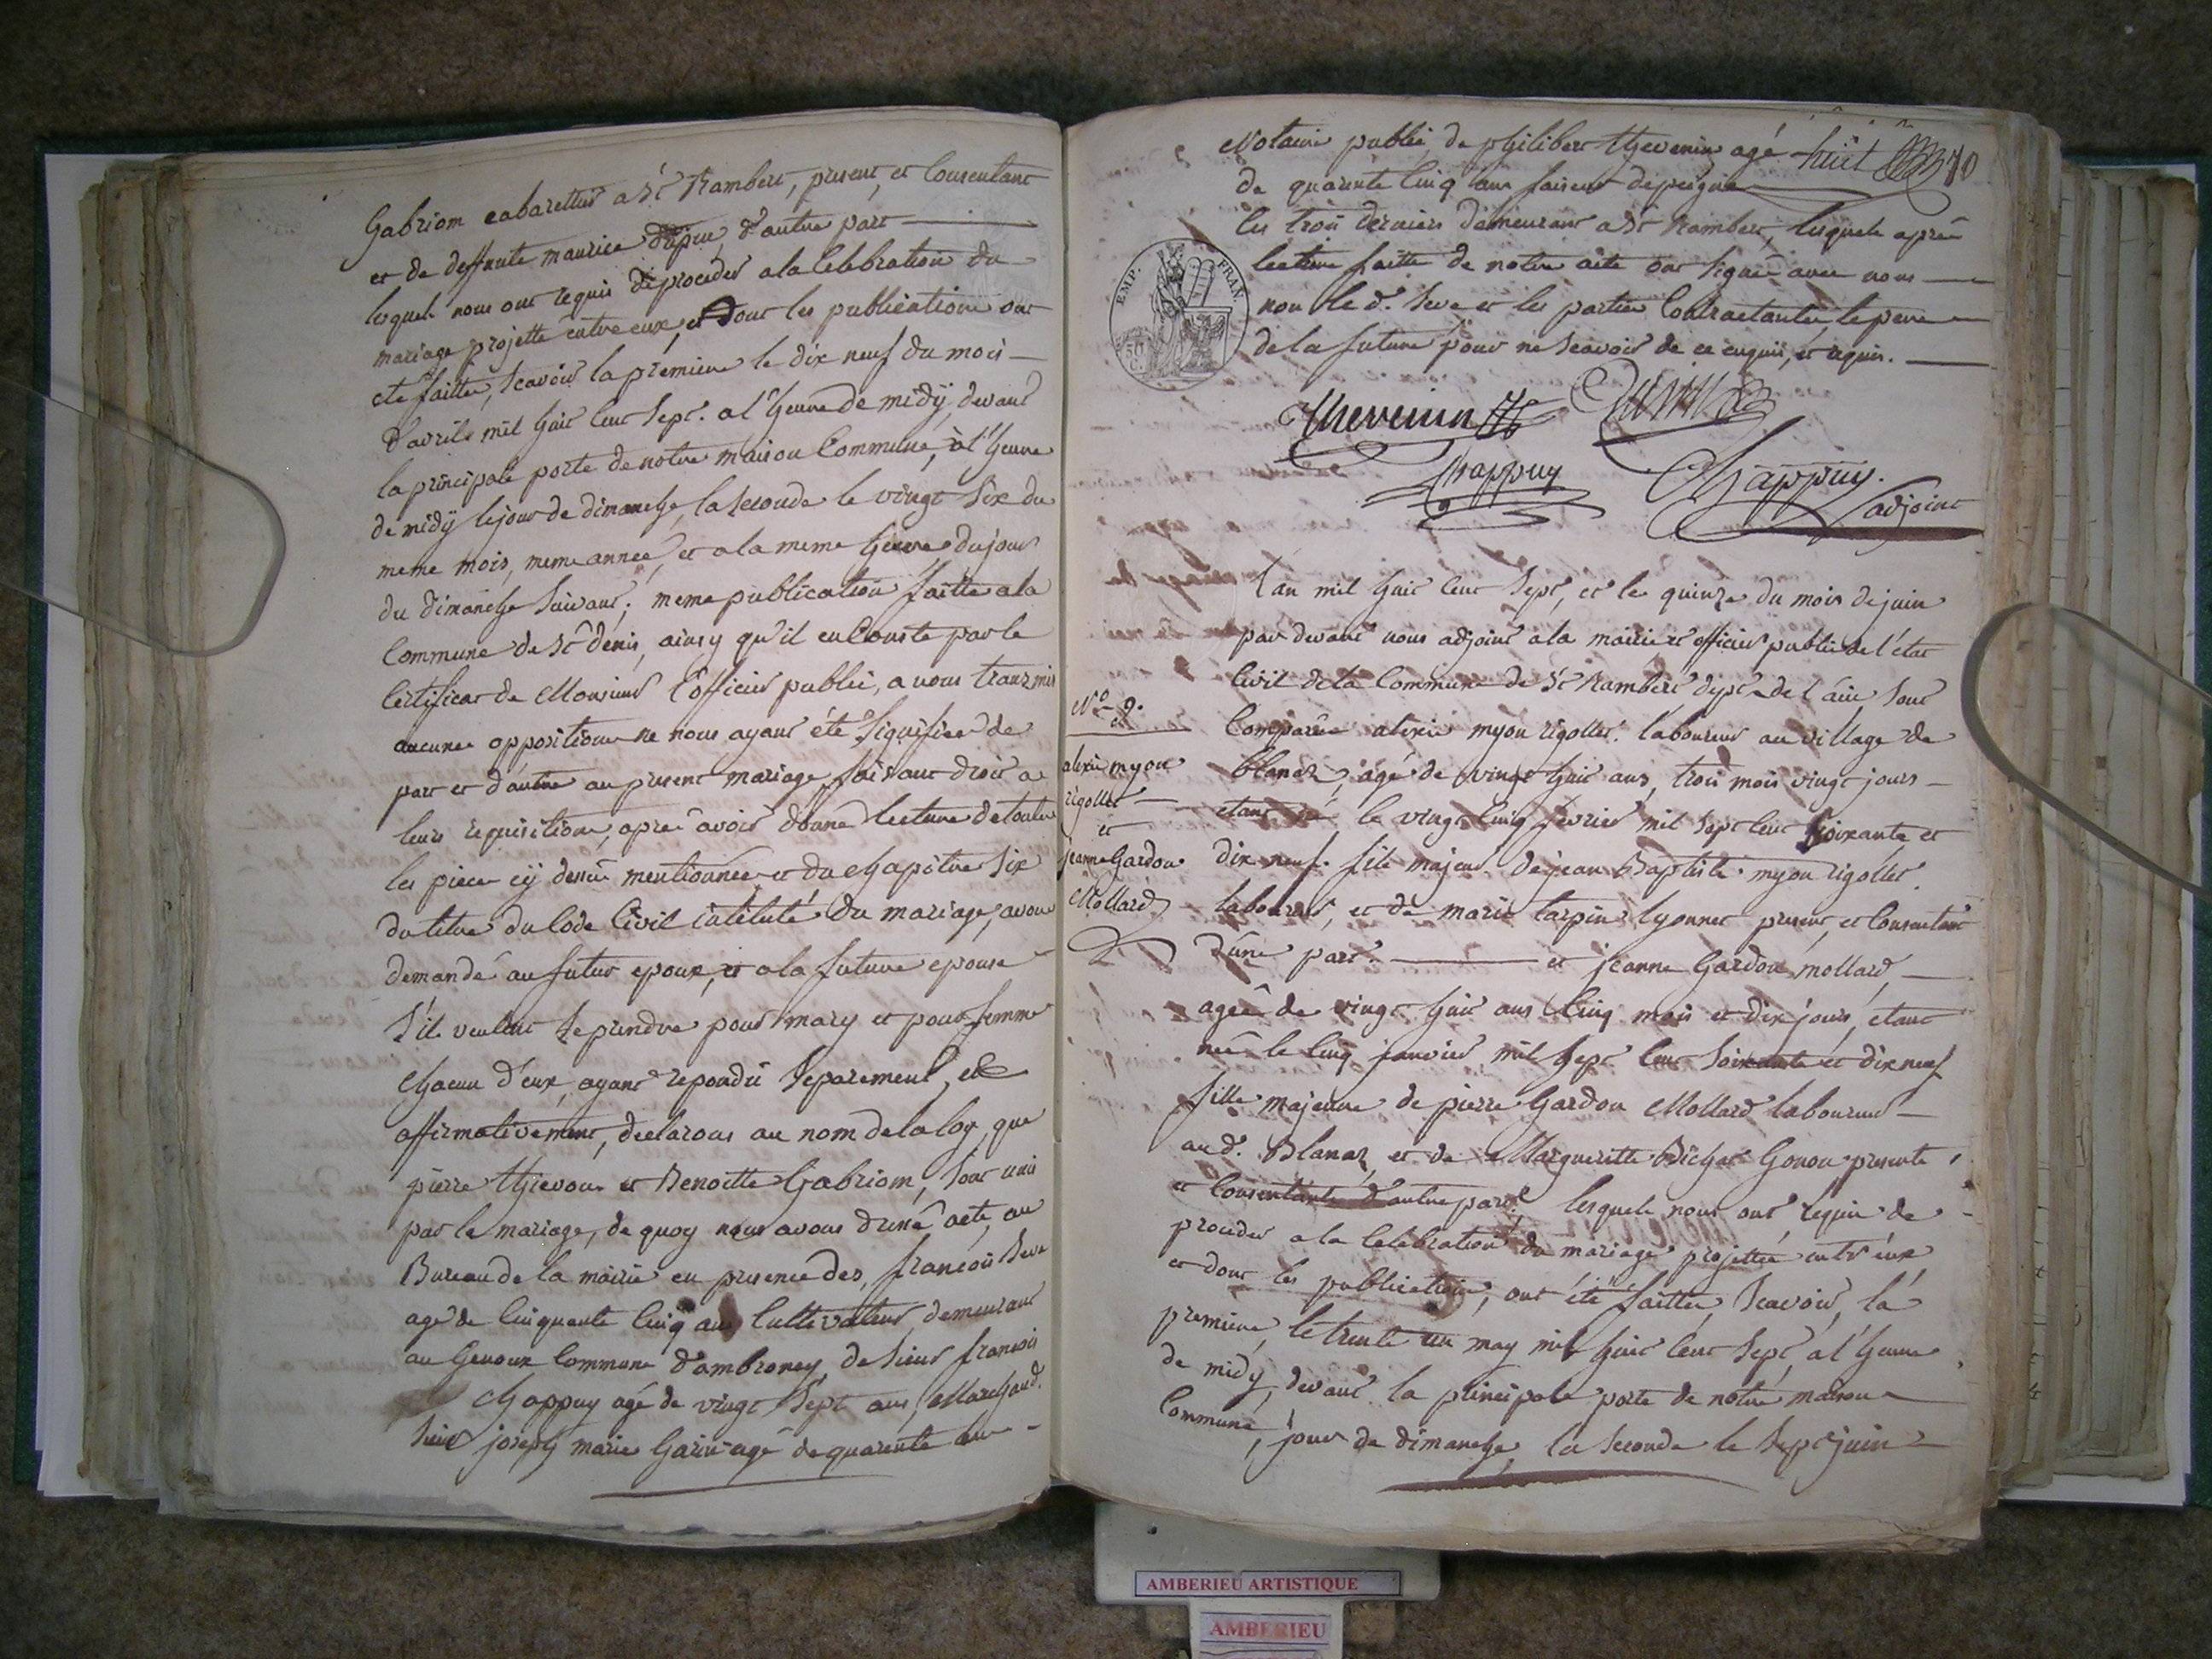 Gabriom cabarettier a St Rambert, present, et Consentant
et de deffunte maurice dupuu, d'autre part
lesquels nous ont requis de proceder a la Celebration du
mariage projetté entre eux, et dont les publications ont
eté faittes, Scavoir la premiere le dix neuf du mois
d'avril mil huit Cent Sept. a l'heure de midÿ, devant
la principale porte de notre maison Commune, a l'heure
de midÿ le jour de dimanche, la Seconde le vingt Six du
meme mois, meme année, et a la meme heure du jour
du dimanche Suivant; meme publication faitte a la
Commune de St denis, ainsy qu'il en Conste par le
Certificat de Monsieur l'officier public, a nous tranzmis
aucunes oppositions ne nous ayant été Signifiées de
part et d'autre au present mariage, faisant droit a
leurs requisitions, apres avoir donné lecture de toutes
les pieces cÿ dessus mentionnées et du chapitre Six
du titre du Code Civil intitulé du mariage, avons
demandé au futur epoux, et a la future epouse
S'ils veulent Se prendre pour mary et pour femme
chacun d'eux, ayant repondu Separement, et
affirmativement, declarons au nom de la loy, que
pierre thievon et Benoitte Gabriom, Sont unis
par le mariage, de quoy nous avons dressé acte, au
Bureau de la mairie en presence des, françois Seve
agé de Cinquante Cinq ans Cultivateur, demeurant
au Genoux Commune d'ambroney, de Sieur françois
Chappuy agé de vingt Sept ans, Marchand.
Sieur joseph marie Garin agé de quarente ans
Notaire public, de philibert thevenin agé huit 70
de quarente Cinq ans faiseur de peignes
les trois derniers demeurant a St Rambert, lesquels après
lecture faitte de notre acte ont Signés avec nous
non le d. Seve et les parties Contractantes, le pere
de la future pour ne Scavoir de ce enquis, et requis.
EMP. FRAN.
50 C.
Thevenin
Chappuy Chappuy.
adjoint
L'an mil huit Cent Sept, et le quinze du mois de juin
par devant nous adjoint a la mairie et officier public de l'état
Civil de la Commune de St Rambert, dept de l'ain, Sont
Comparus alexis myon rigollet. laboureur au village de
blanaz, agé de vingt huit ans, trois mois vingt jours
etant né le vingt Cinq fevrier mil Sept Cent Soixante et
dix neuf. fils majeur de jean Baptiste myon rigollet.
laboureur, et de marie tarpin lyonnet present, et Consentant
d'une part. et jeanne Gardon mollard,
agée de vingt huit ans Cinq mois et dix jours, etant
née le Cinq janvier mil Sept Cent Soixante et dix neuf
fille majeure de pierre Gardon Mollard laboureur
au d. Blanaz, et de Margueritte Bichat Gonon presente,
et Consentante d'autre part. lesquels nous ont requis de
proceder a la Celebration du mariage projettée entr'eux,
et dont les publications, ont été faittes, Scavoir, la
premiere, le trente un may mil huit Cent Sept, a l'heure
de midÿ, devant la principale porte de notre maison
Commune, jour de dimanche, la Seconde le Sept juin
N.o 9.
alexis myon
rigollet
et
jeanne Gardon
Mollard
AMBERIEU ARTISTIQUE
AMBERIEU